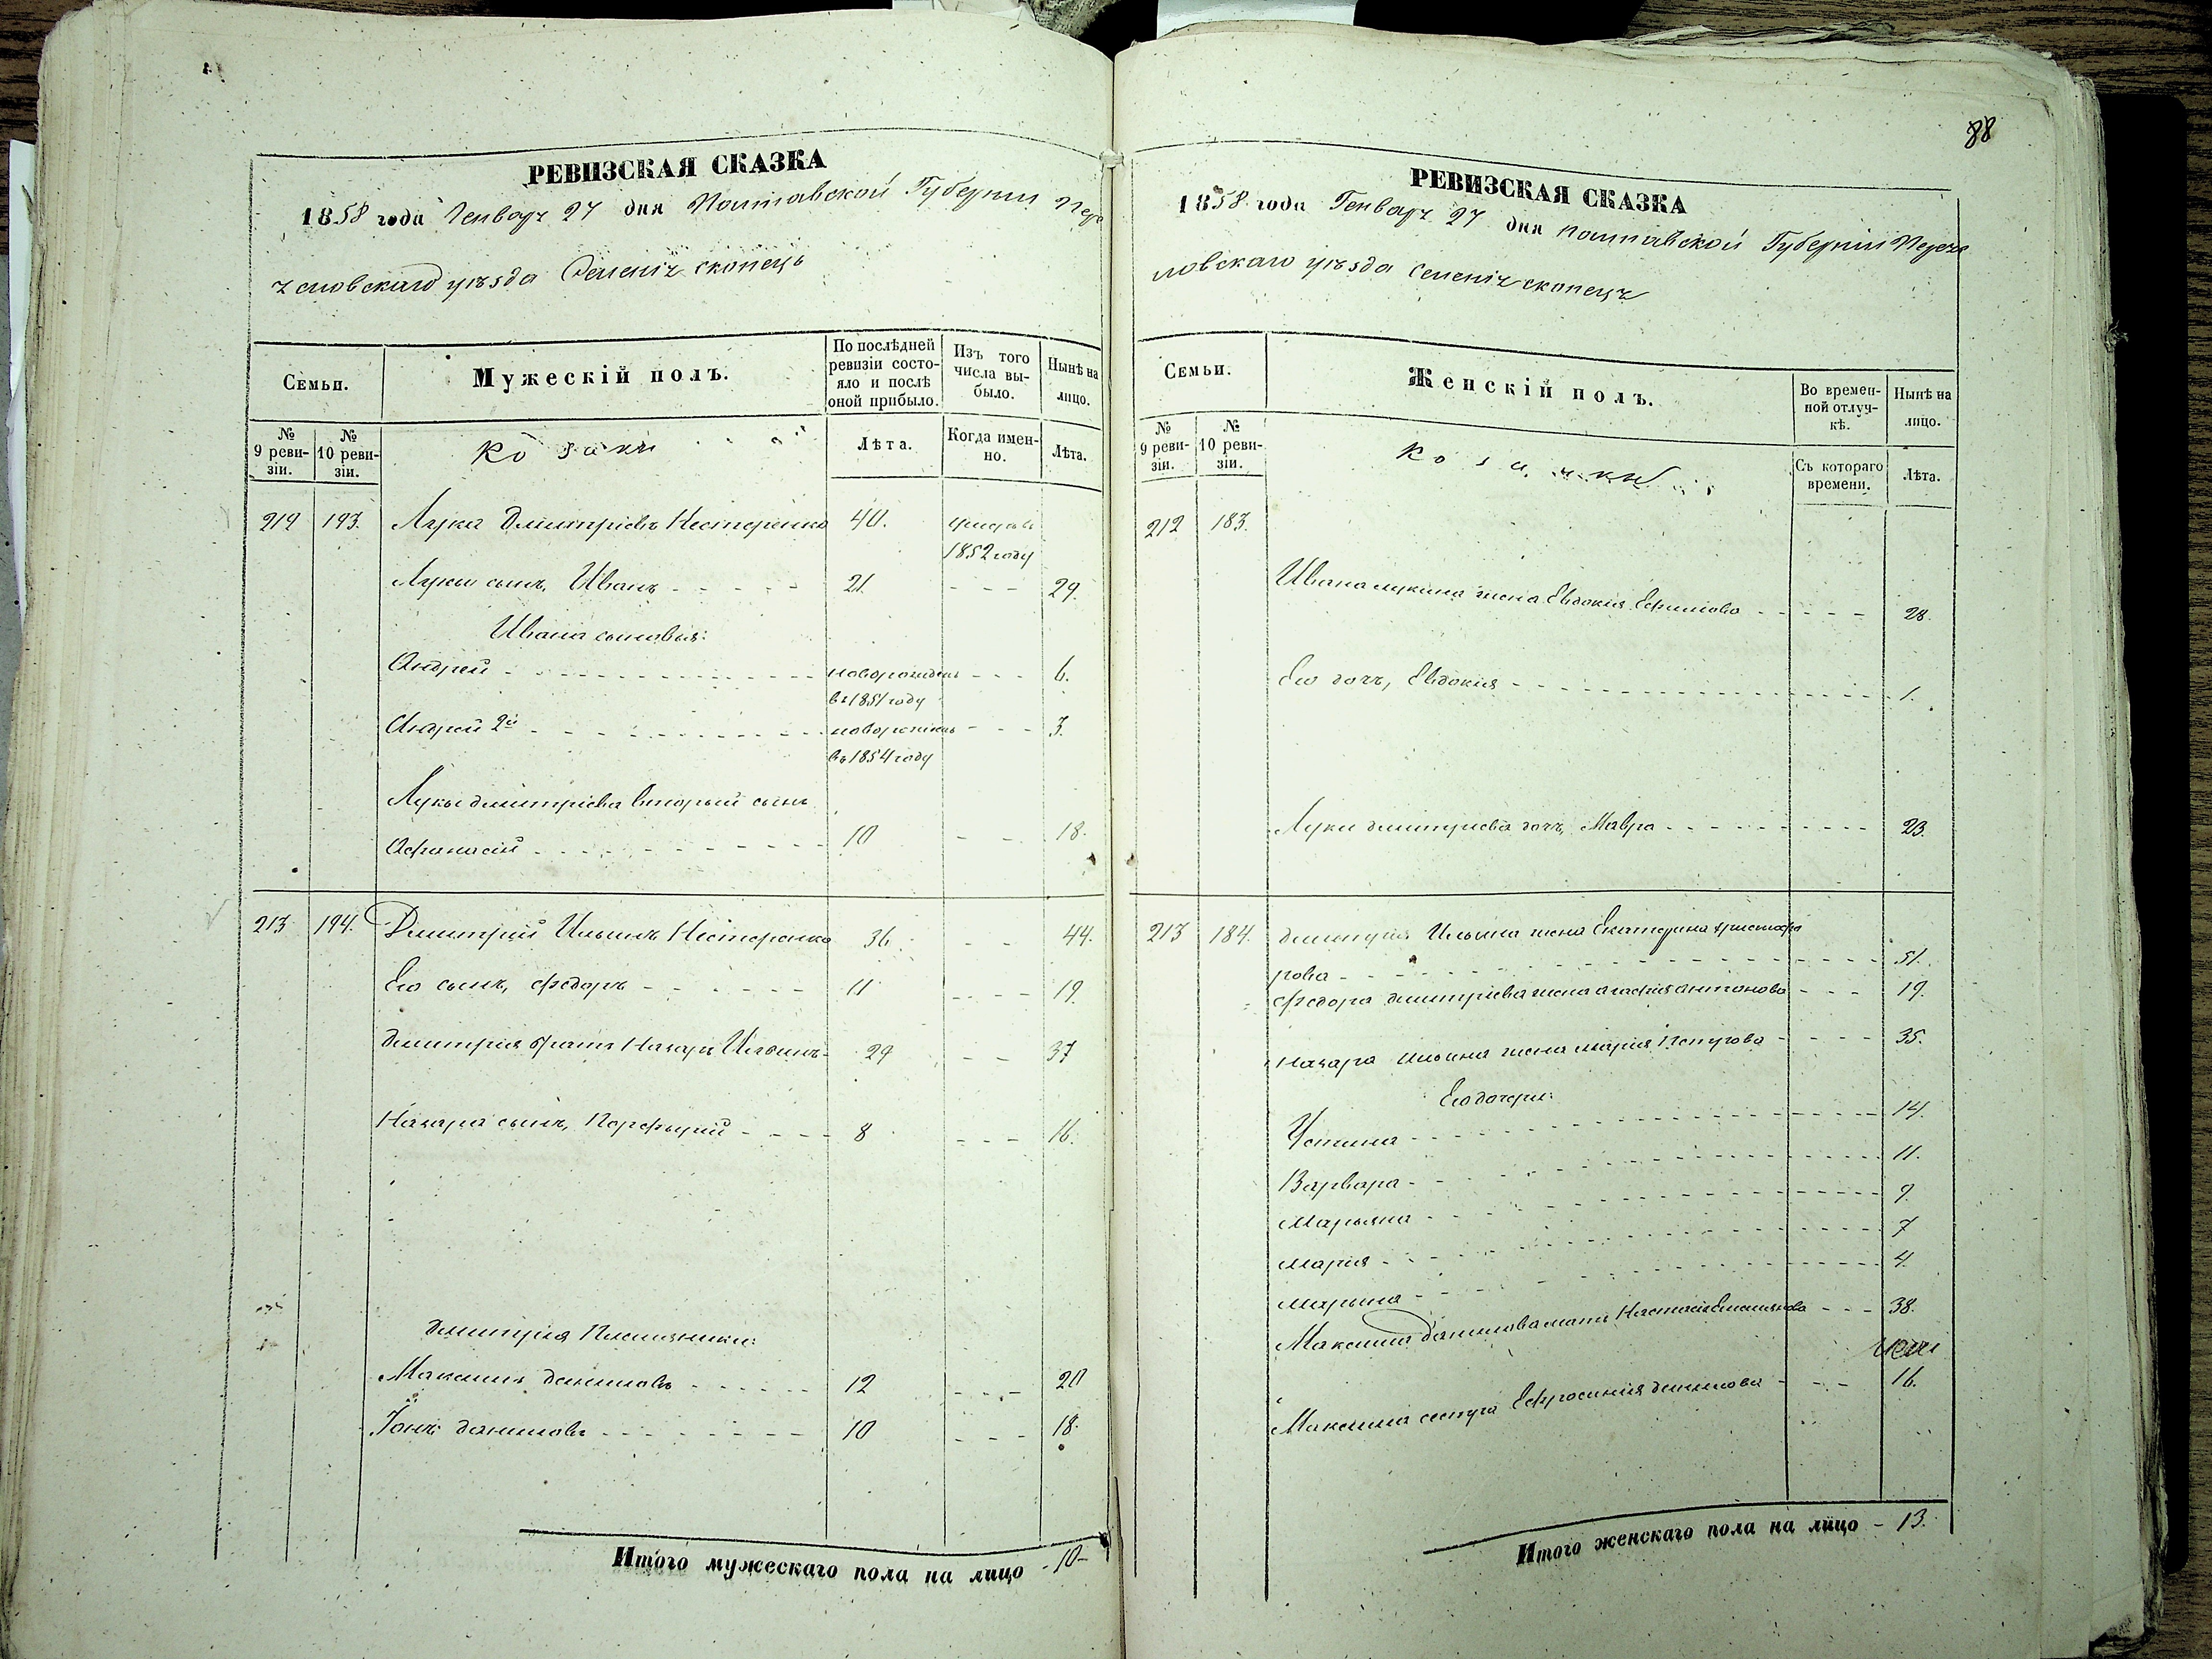 88
РЕВИЗСКАЯ СКАЗКА
1858 года Генваря 27 дня Полтавской Губернии Пере
яславскаго уѣзда
Семьи.
Мужескій полъ.
По послѣдней ревизіи состояло и послѣ оной прибыло.
Изъ того числа выбыло.
Нынѣ на лицо.
№ 9 ревизіи.
№ 10 ревизіи.
Козаки
Лѣта.
Когда именно.
Лѣта.
212 193. Лука Дмитріевъ Нестеренко 40.
1852 году
Луки сынъ, Иванъ 21. 29.
Ивана сыновья:
Андрей новорожденъ 6.
въ 1851 году
Андрей 2й новорожденъ 3.
въ 1854 году
Луки Дмитріева вторый сынъ
Афанасій 10 18.
213 194. Дмитрій Ильинъ Нестеренко 36. 44.
Его сынъ, Федоръ 11 19.
Дмитрія братъ Назаръ Ильинъ 29 37
Назара сынъ, Порфирій 8 16.
Дмитрія Племянники:
Максимъ Даниловъ 12 20
Даниловъ 10 18.
Итого мужескаго пола на лицо -10-
РЕВИЗСКАЯ СКАЗКА
1858 года Генваря 27 дня Полтавской Губерніи
уѣзда
Семьи.
Женскій полъ.
Во временной отлучкѣ.
Нынѣ на лицо.
№ 9 ревизіи.
№ 10 ревизіи.
Козачки
Съ котораго времени.
Лѣта.
212 183.
Ивана Лукина жена Евдокия Ефимова 28.
Его дочь, Евдокия 1.
Луки Дмитриева дочь, Мавра 23.
213 184. Дмитрия Ильина жена Екатерина Христофо
рова 51.
Федора Дмитріева жена Агафия Антонова 19.
Назара Ильина жена Мария Петрова 35.
Его дочери:
Устина 14.
Варвара 11.
Марьяна 9.
Мария 7
Марьина 4.
Максима Данилова мать Настасія Емельянова 38.
Максима сестра Ефросиния Данилова 16.
Итого женскаго пола на лицо - 13.